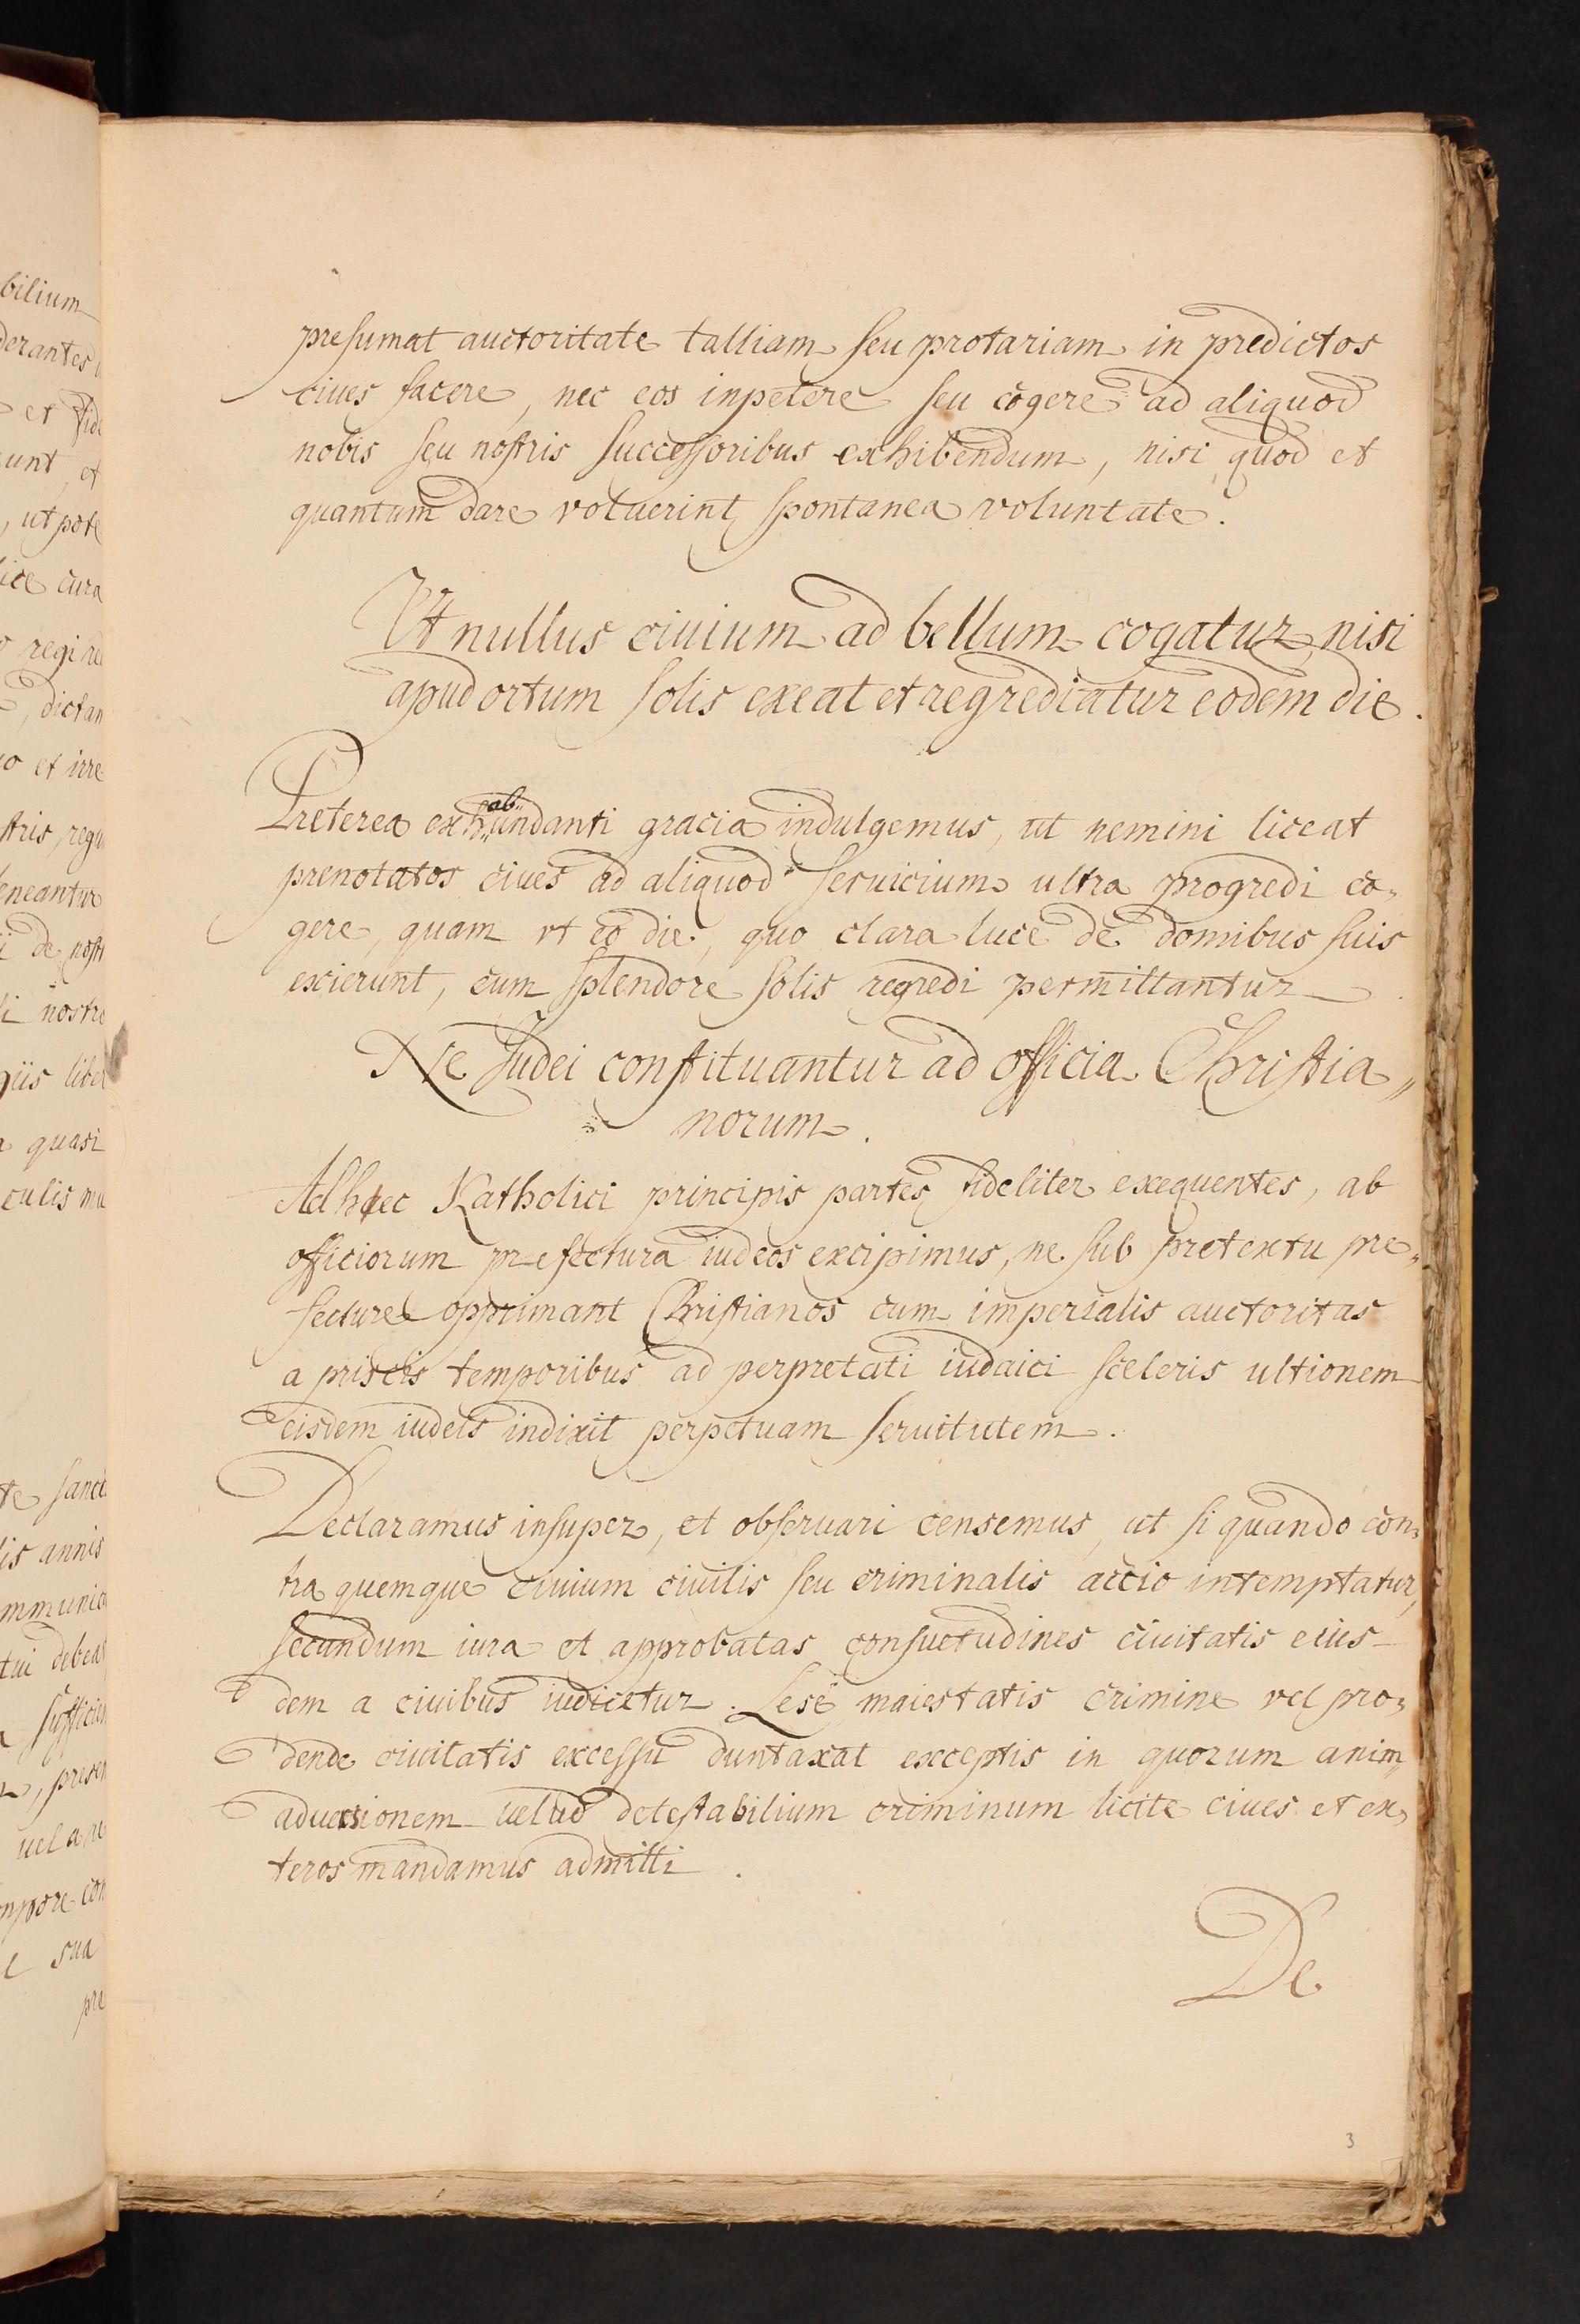 bilium
derantes
et fide
unt, et
, ut pote
lice cura
regi ne
, dictan
o et irre
stris, regu
teneantur
i de nostr
li nostro
giis liber
a quasi
culis mu
te sanct
lis annis
mmunica
tui debeas
sufficien
, presen
uel are
mpore con
e sua
pre
presumat auctoritate talliam seu protariam in predictos
ciues facere, nec eos inpetere seu cogere ad aliquod
nobis seu nostris successoribus exhibendum, nisi quod et
quantum dare voluerint spontanea voluntate.
Ut nullus ciuium ad bellum cogatur, nisi
apud ortum solis exeat et regrediatur eodem die.
Preterea exhundanti ab gracia indulgemus, ut nemini liceat
prenotatos ciues ad aliquod seruicium ultra progredi co-
gere, quam vt eo die, quo clara luce de domibus suis
exierunt, cum splendore solis regredi permittantur
Ne Judei constituantur ad officia Christia„
norum.
Ad hec Katholici principis partes fideliter exequentes, ab
officiorum prefectura iudeos excipimus, ne sub pretextu pre„
fecture opprimant Christianos cum imperialis auctoritas
a priscis temporibus ad perpretati iudaici sceleris ultionem
eisdem iudeis indixit perpetuam seruitutem.
Declaramus insuper, et obseruari censemus, ut si quando con„
tra quemque ciuium ciuilis seu criminalis accio intemptatur,
secundum iura et approbatas consuetudines ciuitatis eius-
dem a ciuibus iudicetur. Lese maiestatis crimine vel pro„
dende ciuitatis excessu duntaxat exceptis in quorum anim„
aduersionem velud detestabilium criminum licite ciues et ex„
teros mandamus admitti.
De
3